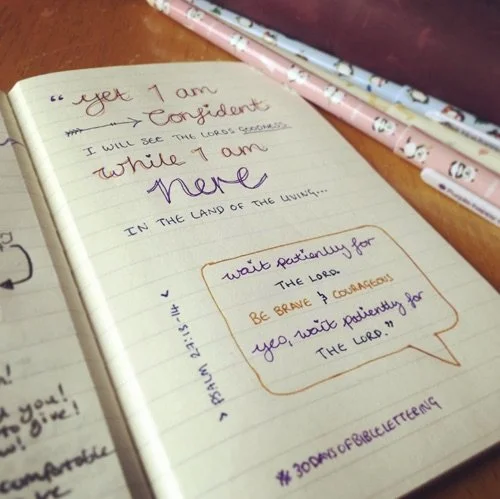 “yet I am
Confident
I WILL SEE THE LORDS GOODNESS
while I am
here
IN THE LAND OF THE LIVING...
wait patiently for
THE LORD.
BE BRAVE & COURAGEOUS
yes, wait patiently for
THE LORD.”
PSALM 27:13-14
#30DAYSOFBIBLELETTERING
you!
to give!
comfortable
be